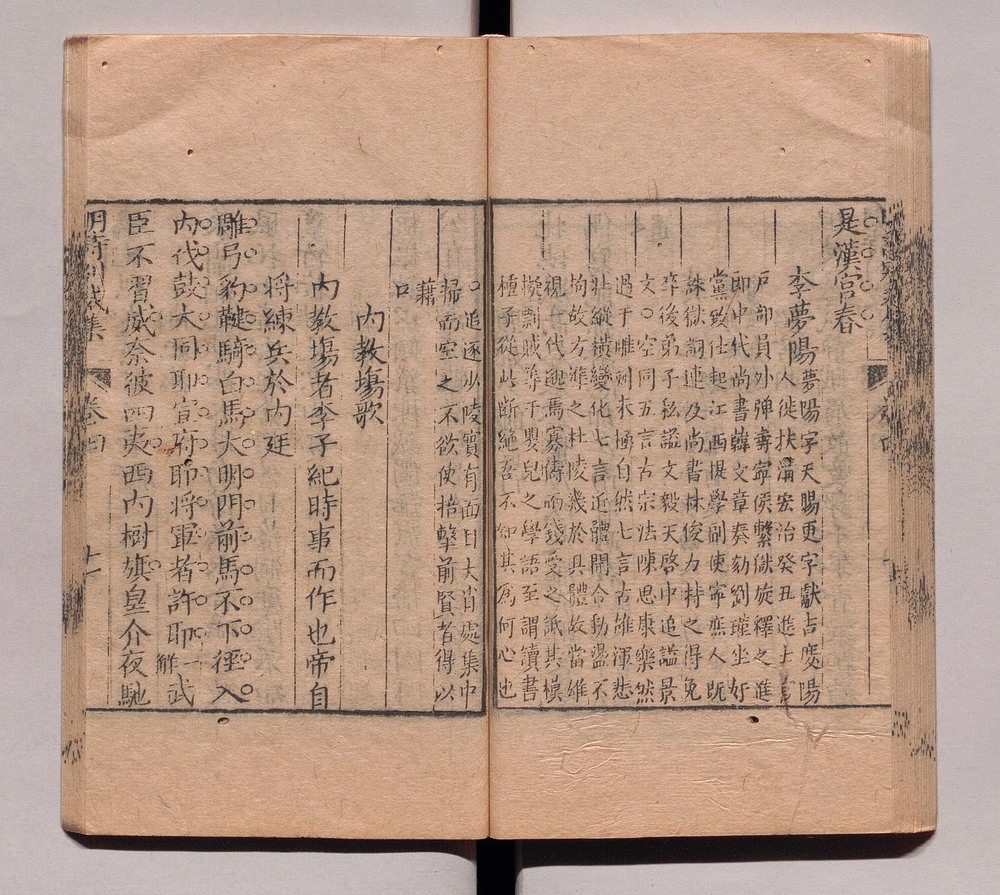 是漢宮春
李夢陽 夢陽字天賜更字獻吉慶陽
人徙扶溝宏治癸丑進士官
戶部員外彈壽寧侯繫獄旋釋之進
即中代尚書韓文章奏劾劉瑾坐奸
黨致仕起江西提學副使寧庶人既
誅獄詞連及尚書林俊力持之得免
卒後弟子私諡文毅天啓中追諡景
文○空同五言古宗法陳思康樂然
過于雕刻未極自然七言古雄渾悲
壯縱橫變化七言近體開合動盪不
拘故方準之杜陵幾於具體故當雄
視一代邈焉寡儔而錢受之詆其模
擬剽賊等于嬰兒之學語至謂讀書
種子從此斷絕吾不知其爲何心也
○追逐少陵實有面目大肖處集中
掃而空之不欲使掊擊前賢者得以
藉
口
內教塲歌
內教塲者李子紀時事而作也帝自
將練兵於內廷
雕弓豹鞬騎白馬大明門前馬不下徑入
內伐鼓大同耶宣府耶將軍者許耶一解武
臣不習威奈彼四夷西內樹旗皇介夜馳
明詩別裁集 卷四 十一